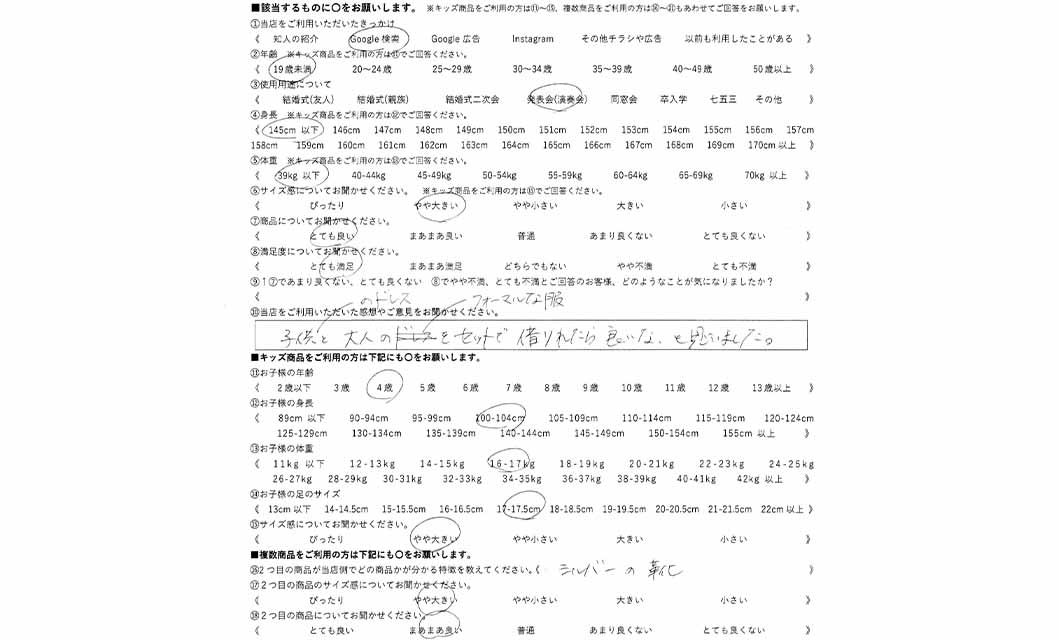 ■該当するものに〇をお願いします。 ※キッズ商品をご利用の方は⑪〜⑮、複数商品をご利用の方は⑯〜㉑もあわせてご回答をお願いします。
①当店をご利用いただいたきっかけ
《 知人の紹介 Google 検索 Google 広告 Instagram その他チラシや広告 以前も利用したことがある 》
②年齢 ※キッズ商品をご利用の方は⑪でご回答ください。
《 19歳未満 20〜24歳 25〜29歳 30〜34歳 35〜39歳 40〜49歳 50歳以上 》
③使用用途について
《 結婚式(友人) 結婚式(親族) 結婚式二次会 発表会(演奏会) 同窓会 卒入学 七五三 その他 》
④身長 ※キッズ商品をご利用の方は⑫でご回答ください。
《 145cm 以下 146cm 147cm 148cm 149cm 150cm 151cm 152cm 153cm 154cm 155cm 156cm 157cm
158cm 159cm 160cm 161cm 162cm 163cm 164cm 165cm 166cm 167cm 168cm 169cm 170cm 以上 》
⑤体重 ※キッズ商品をご利用の方は⑬でご回答ください。
《 39kg 以下 40-44kg 45-49kg 50-54kg 55-59kg 60-64kg 65-69kg 70kg 以上 》
⑥サイズ感についてお聞かせください。 ※キッズ商品をご利用の方は⑮でご回答ください。
《 ぴったり やや大きい やや小さい 大きい 小さい 》
⑦商品についてお聞かせください。
《 とても良い まあまあ良い 普通 あまり良くない とても良くない 》
⑧満足度についてお聞かせください。
《 とても満足 まあまあ満足 どちらでもない やや不満 とても不満 》
⑨1⑦であまり良くない、とても良くない ⑧でやや不満、とても不満とご回答のお客様、どのようなことが気になりましたか？
《 》
のドレス フォーマルな服
⑩当店をご利用いただいた感想やご意見をお聞かせください。
子供と 大人のドレスをセットで 借りれたら良いな、と思いました。
■キッズ商品をご利用の方は下記にも〇をお願いします。
⑪お子様の年齢
《 2歳以下 3歳 4歳 5歳 6歳 7歳 8歳 9歳 10歳 11歳 12歳 13歳以上 》
⑫お子様の身長
《 89cm 以下 90-94cm 95-99cm 100-104cm 105-109cm 110-114cm 115-119cm 120-124cm
125-129cm 130-134cm 135-139cm 140-144cm 145-149cm 150-154cm 155cm 以上 》
⑬お子様の体重
《 11kg 以下 12-13kg 14-15kg 16-17kg 18-19kg 20-21kg 22-23kg 24-25kg
26-27kg 28-29kg 30-31kg 32-33kg 34-35kg 36-37kg 38-39kg 40-41kg 42kg 以上 》
⑭お子様の足のサイズ
《 13cm 以下 14-14.5cm 15-15.5cm 16-16.5cm 17-17.5cm 18-18.5cm 19-19.5cm 20-20.5cm 21-21.5cm 22cm 以上 》
⑮サイズ感についてお聞かせください。
《 ぴったり やや大きい やや小さい 大きい 小さい 》
■複数商品をご利用の方は下記にも〇をお願いします。
⑯2つ目の商品が当店側でどの商品かが分かる特徴を教えてください。《 シルバーの靴 》
⑰2つ目の商品のサイズ感についてお聞かせください。
《 ぴったり やや大きい やや小さい 大きい 小さい 》
⑱2つ目の商品についてお聞かせください。
《 とても良い まあまあ良い 普通 あまり良くない とても良くない 》